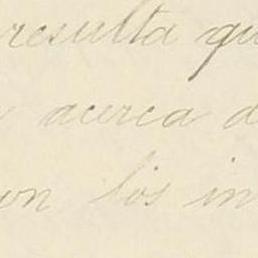 resulta qu
acerca d
on los in